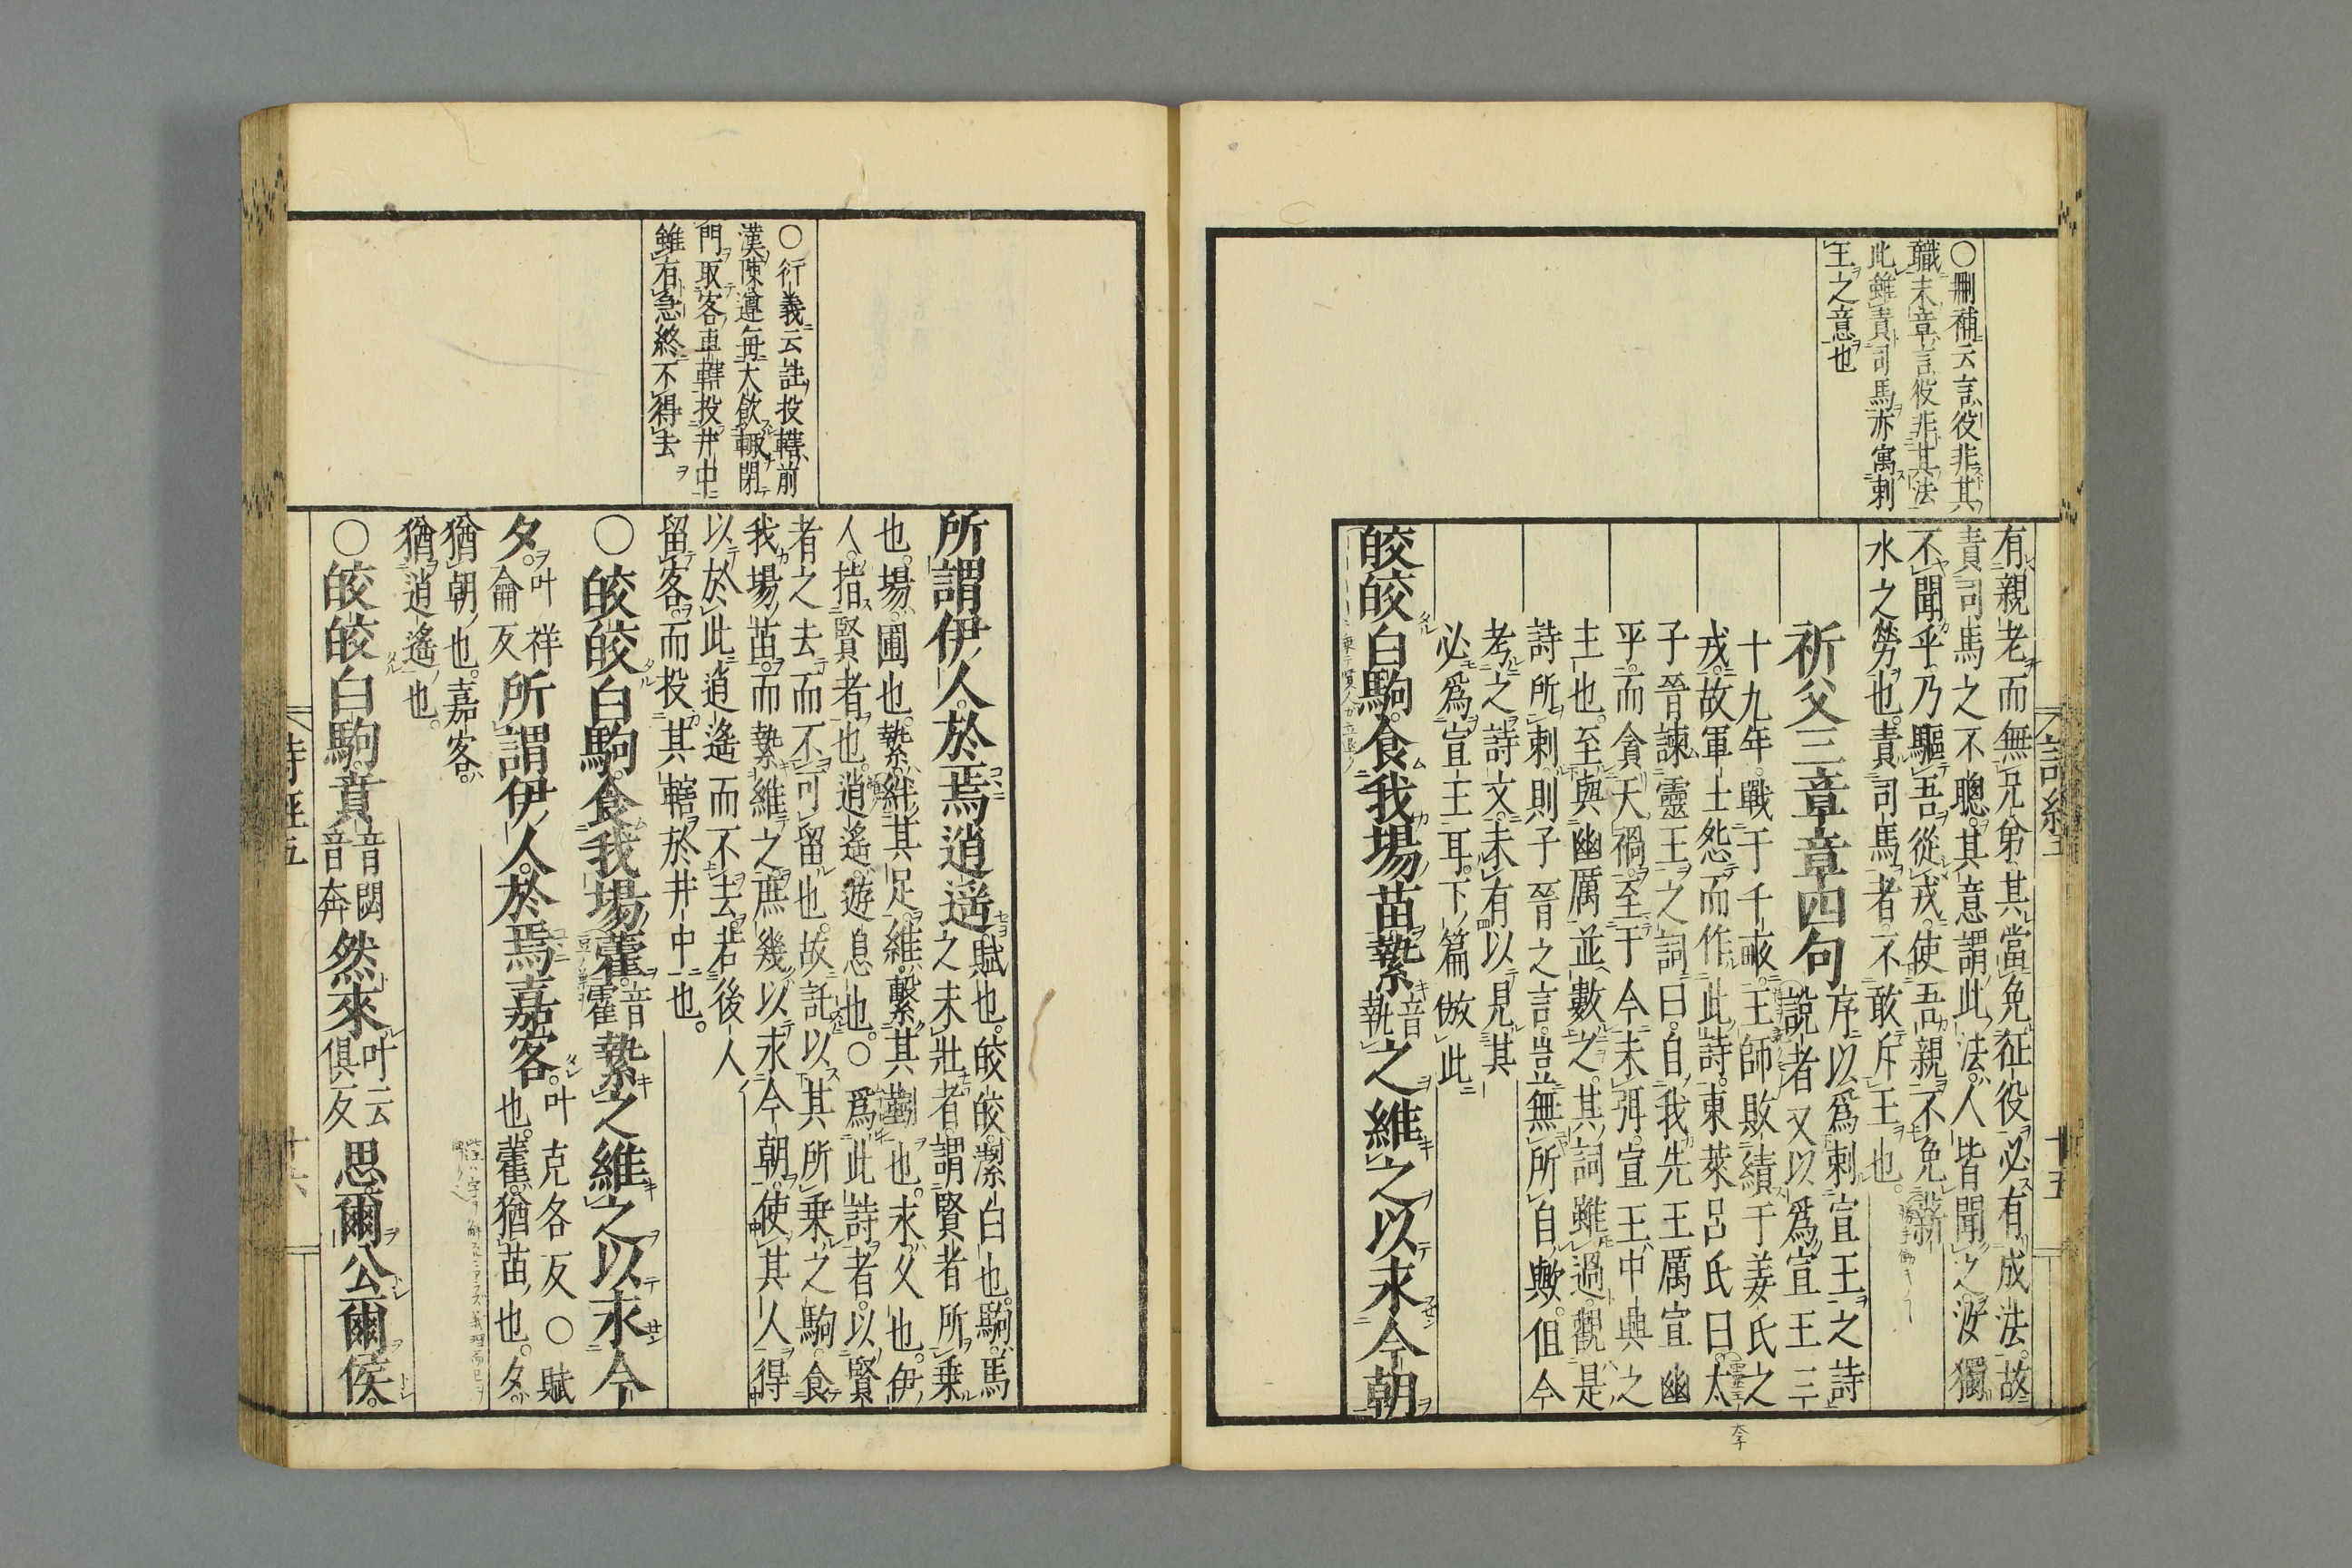 ○刪補云言役非其
職末章言役非其法
此雖責司馬亦寓刺
王之意也
有親老而無兄弟其當免征役必有成法故
責司馬之不聰其意謂此法人皆聞之汝獨
不聞乎乃驅吾從戎使吾親不免薪
水之勞也責司馬者不敢斥王也
祈父三章章四句
序以爲刺宣王之詩
說者又以爲宣王三
十九年戰于千畝王師敗績于姜氏之
戎故軍士怨而作此詩東萊呂氏曰太
子晉諫靈王之詞曰自我先王厲宣幽
平而貪天禍至于今未弭宣王中興之
主也至與幽厲並數之其詞雖過觀是
詩所刺則子晉之言豈無所自歟但今
考之詩文未有以見其
必爲宣王耳下篇倣此
皎皎白駒食我場苗縶音執之維之以永今朝
詩經五
十五
○衍義云註投轄前
漢陳遵每大飲輒閉
門取客車轄投井中
雖有急終不得去
所謂伊人於焉逍遙賦也皎皎潔白也駒馬
之未壯者謂賢者所乗
也場圃也縶絆其足維繫其靷也永久也伊
人指賢者也逍遙遊息也○爲此詩者以賢
者之去而不可留也故託以其所乗之駒食
我場苗而縶維之庶幾以永今朝使其人得
以於此逍遙而不去若後人
留客而投其轄於井中也
○皎皎白駒食我場藿音霍縶之維之以永今
夕叶祥龠反所謂伊人於焉嘉客叶克各反○賦
也藿猶苗也夕
猶朝也嘉客
猶逍遙也
○皎皎白駒賁音閟音奔然來叶云俱反思爾公爾侯
詩經五
十六
太子